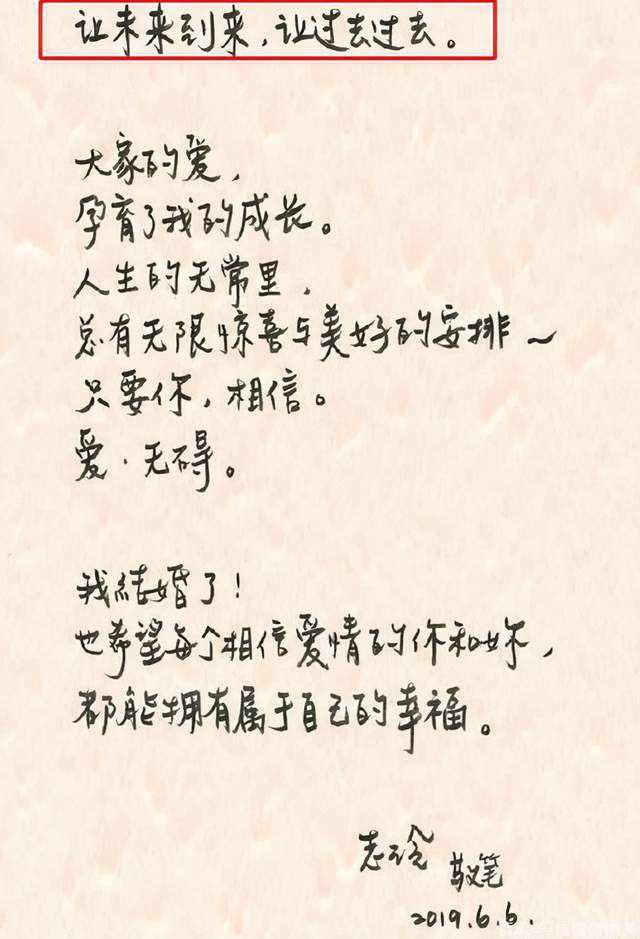 让未来到来,让过去过去。
大家的爱,
孕育了我的成长。
人生的无常里,
总有无限惊喜与美好的安排~
只要你,相信。
爱·无碍。
我結婚了!
也希望每个相信爱情的你和妳,
都能拥有属于自己的幸福。
志玲 敬笔
2019.6.6.